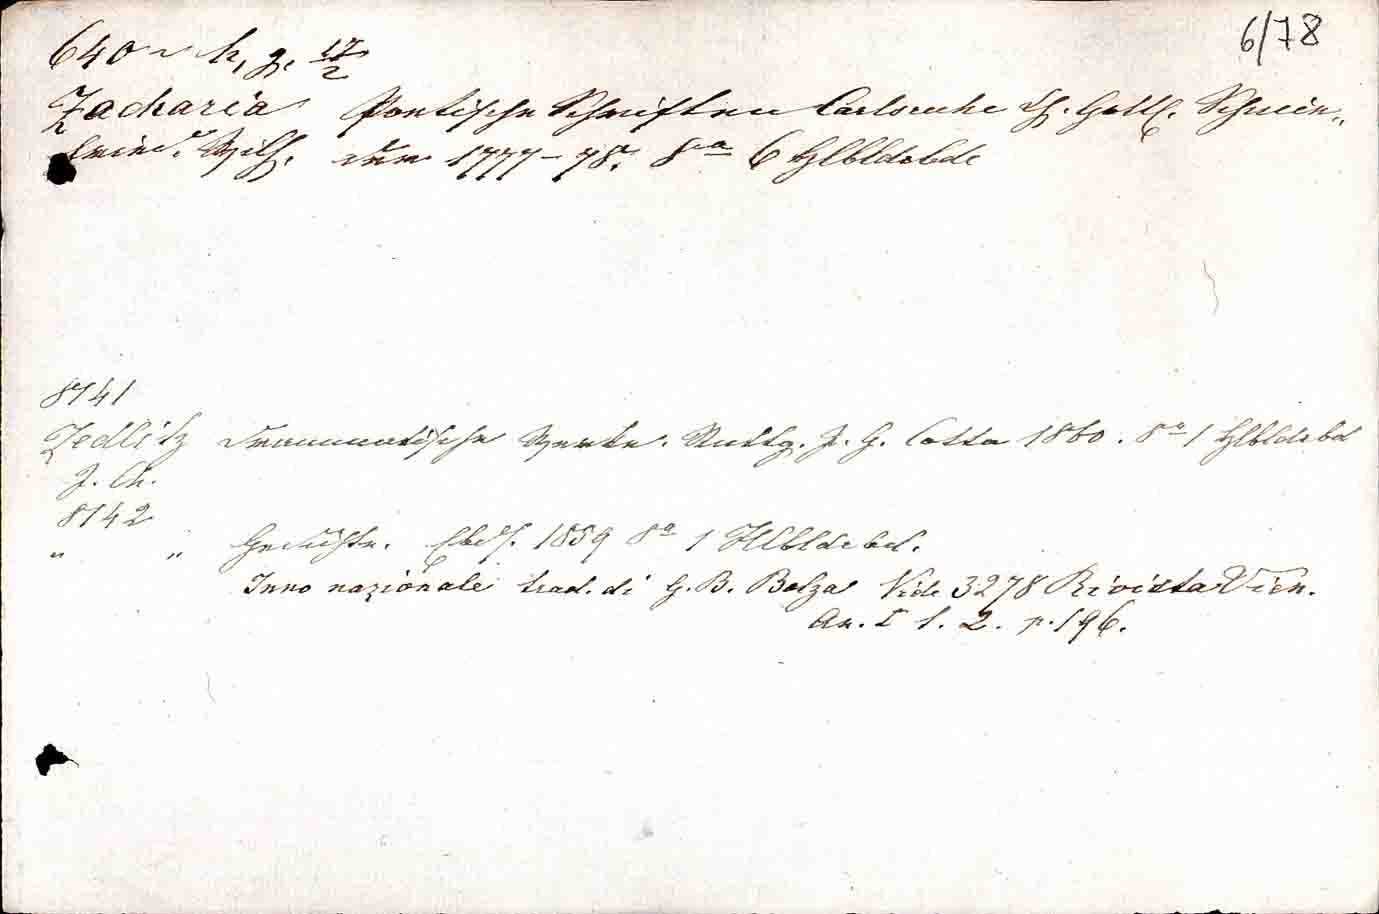 6/78
640 h. g. 17/2
Zacharia Poetische Schriften Carlsruhe Ch. Gottl. Schmie-
Fried. Wilh. der 1777-78. 8° 6 Hlbldrbde
8141
Zedlitz Dramatische Werke. Stuttg. J. G. Cotta 1860. 8° 1 Hlbldrbd
J. Ch.
8142
" " Gedichte. Ebds. 1859 8° 1 Hlbldrbd.
Inno nazionale trad. di G. B. Bolza Vide 3278 Rivista Vien.
An. I t. 2. p. 196.